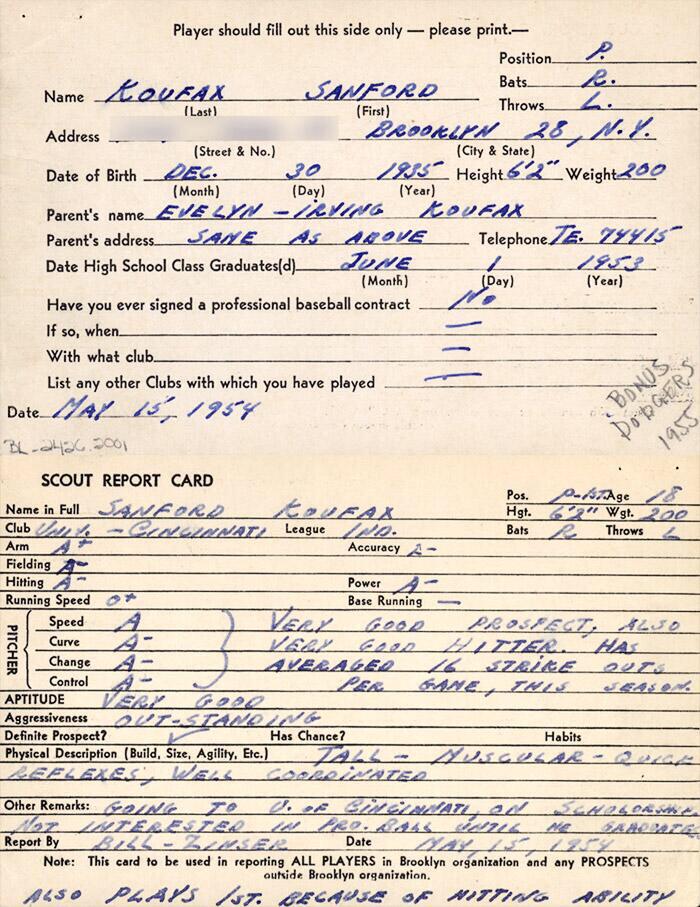 Player should fill out this side only — please print.—
Position P.
Bats R.
Name KOUFAX SANFORD
Throws L.
(Last) (First)
Address BROOKLYN 28, N.Y.
(Street & No.) (City & State)
Date of Birth DEC. 30 1935 Height 6'2" Weight 200
(Month) (Day) (Year)
Parent's name EVELYN - IRVING KOUFAX
Parent's address SAME AS ABOVE Telephone TE. 74415
Date High School Class Graduates(d) JUNE 1 1953
(Month) (Day) (Year)
Have you ever signed a professional baseball contract No
If so, when —
With what club —
List any other Clubs with which you have played —
Date MAY 15, 1954
BONUS
DODGERS
1955
BL-2426.2001
SCOUT REPORT CARD
Pos. Age 18
Name in Full SANFORD KOUFAX Hgt. 6'2" Wgt. 200
Club UNIV. - CINCINNATI League IND. Bats R Throws L
Arm A+ Accuracy A-
Fielding A-
Hitting A- Power A-
Running Speed 0+ Base Running —
PITCHER
Speed A VERY GOOD PROSPECT, ALSO
Curve A- VERY GOOD HITTER. HAS
Change A- AVERAGED 16 STRIKE OUTS
Control A- PER GAME, THIS SEASON.
APTITUDE VERY GOOD
Aggressiveness OUT-STANDING
Definite Prospect? ✓ Has Chance? Habits
Physical Description (Build, Size, Agility, Etc.) TALL - MUSCULAR - QUICK
REFLEXES, WELL COORDINATED
Other Remarks: GOING TO U. OF CINCINNATI, ON SCHOLORSHIP.
NOT INTERESTED IN PRO. BALL UNTIL HE GRADUATES
Report By BILL - ZINSER Date MAY, 15, 1954
Note: This card to be used in reporting ALL PLAYERS in Brooklyn organization and any PROSPECTS
outside Brooklyn organization.
ALSO PLAYS 1ST. BECAUSE OF HITTING ABILITY